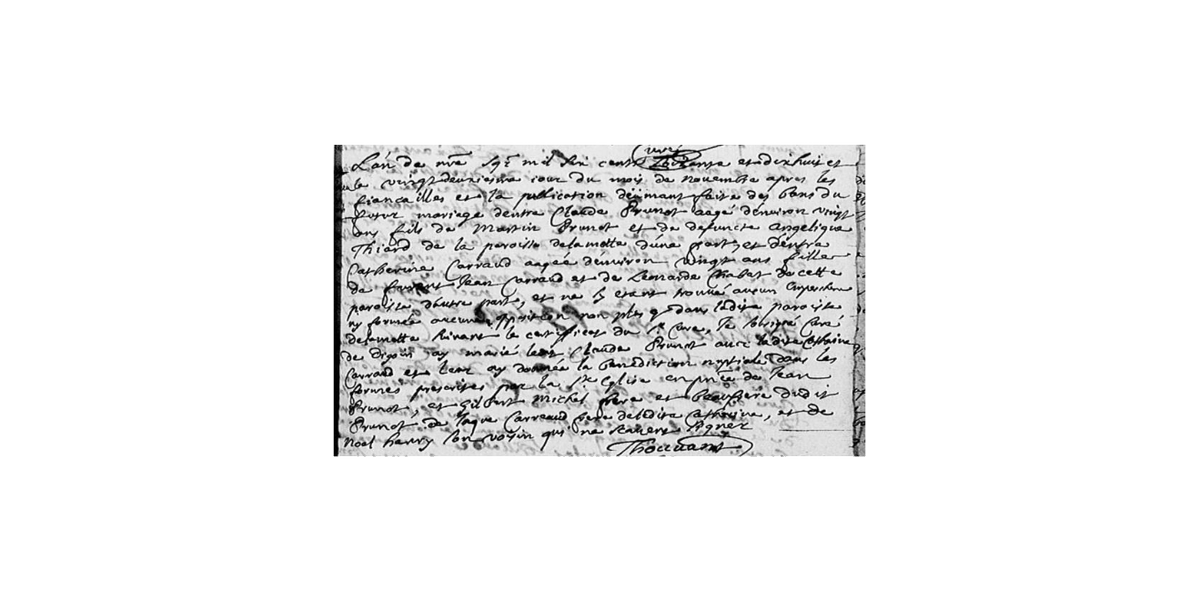 L'an de nre sgr mil six cents soixante et dix huit et
le vingt deuxiesme iour du mois de novembre apres les
fiancailles et la publication deumant faite des bans du
futur mariage dentre Claude Brunot aagé denviron vingt
ans fils de Martin Brunot et de defuncte angelique
Thiard de la paroisse de la motte dune part, et dentre
Catherine Carraud aagée denviron vingt ans fille
de Jean Carraud et de Leonarde Chabat de cette
paroisse dautre part, et ne sy etant trouué aucun empeschem
ny formée aucune opposition non plus q dans ladite paroisse
de la motte suivant le certificat du Sr Curé, Je soubsigné Curé
de digoin ay marié led Claude Brunot auec ladite Catherine
Carraud et leur ay donnée la benediction nuptiale dans les
formes prescrites par la Ste Eglise en pnce de Jean
Brunot, et Gilbert Michel frere et beaufrere dudit
Brunot de Carreaud pere de ladite Catherine, et de
Noel haury son voysin qui ne scavent signer